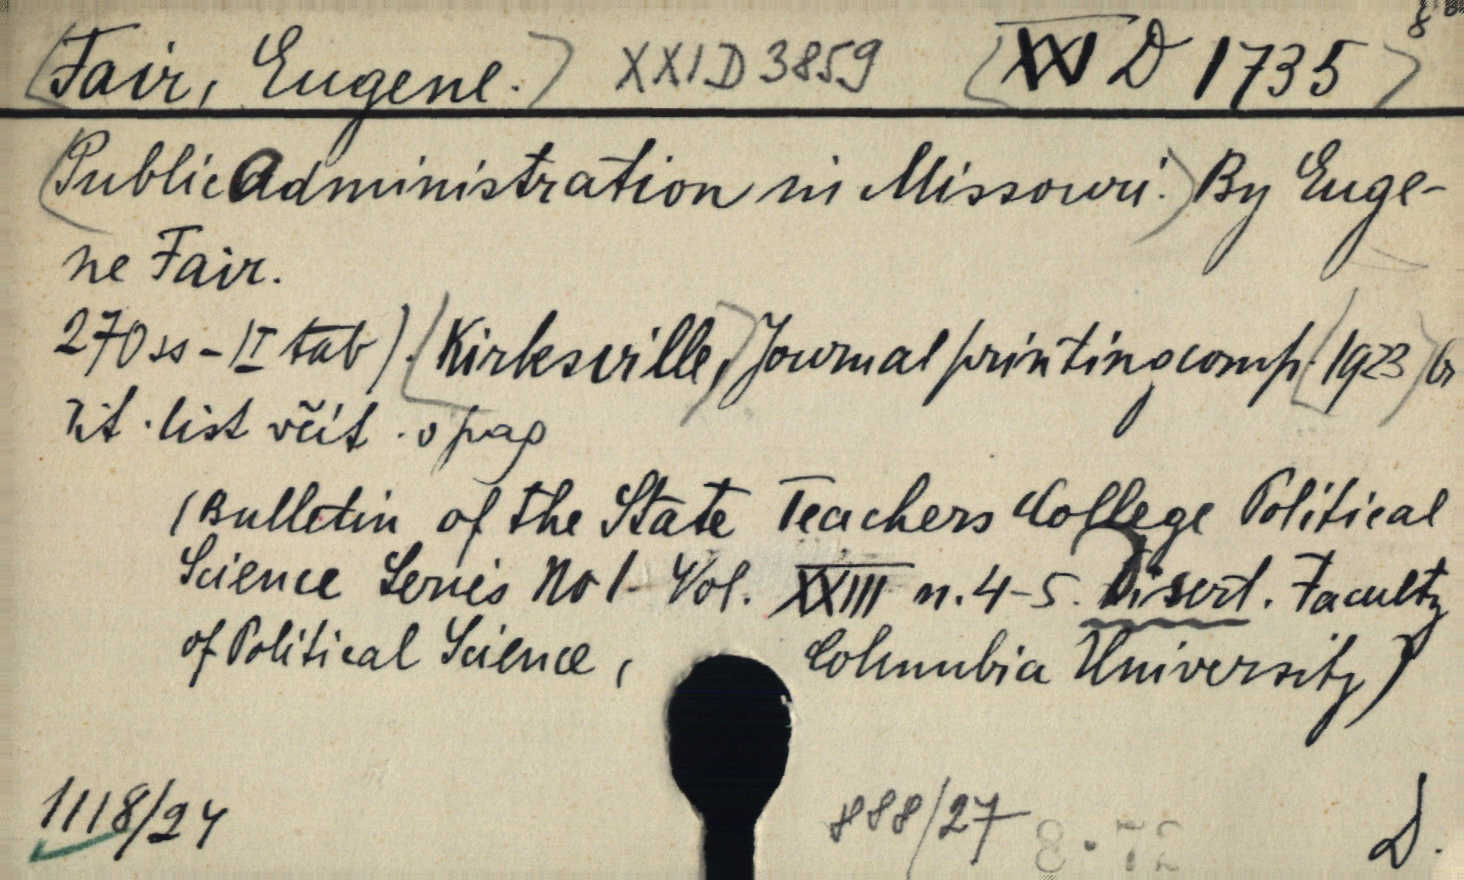 (Fair, Eugene.) XXI D 3859 (XXI D 1735) 8°
(Public Administration in Missouri.) By Euge-
ne Fair.
270 ss - II tab). (Kirksville,) Journal printing comp. (1923) br
tit. list včít. v pag
(Bulletin of the State Teachers College Political
Science Series No 1. Vol. XXIII n. 4-5. Disert. Faculty
of Political Science, Columbia University)
1118/24 888/27 D.